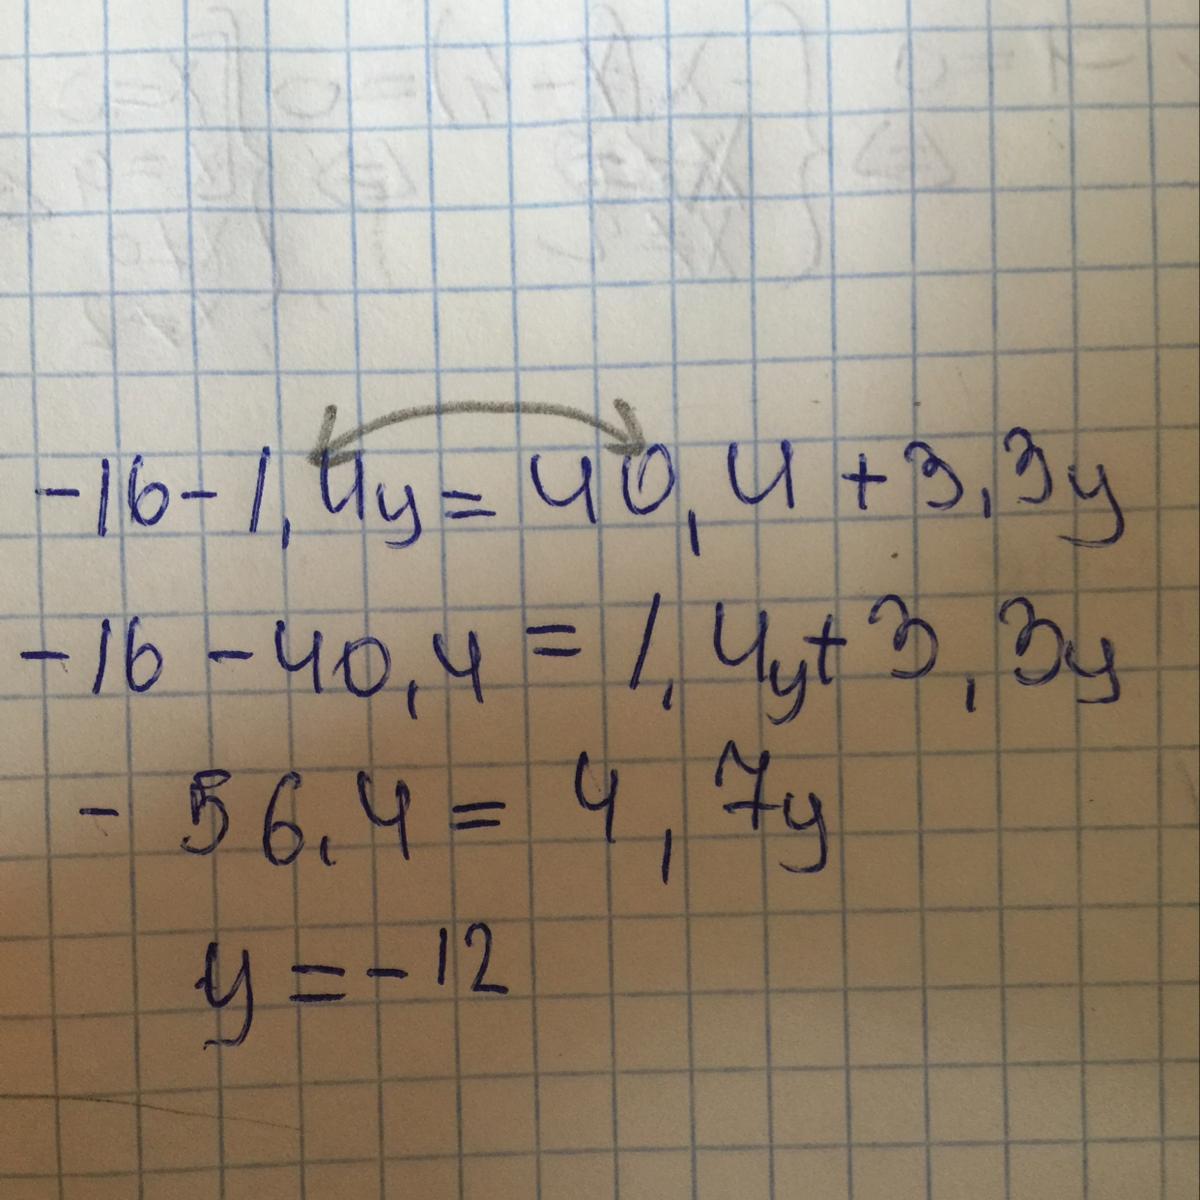 -16-1,4y=40,4+3,3y
-16-40,4=1,4y+3,3y
-56,4=4,7y
y=-12